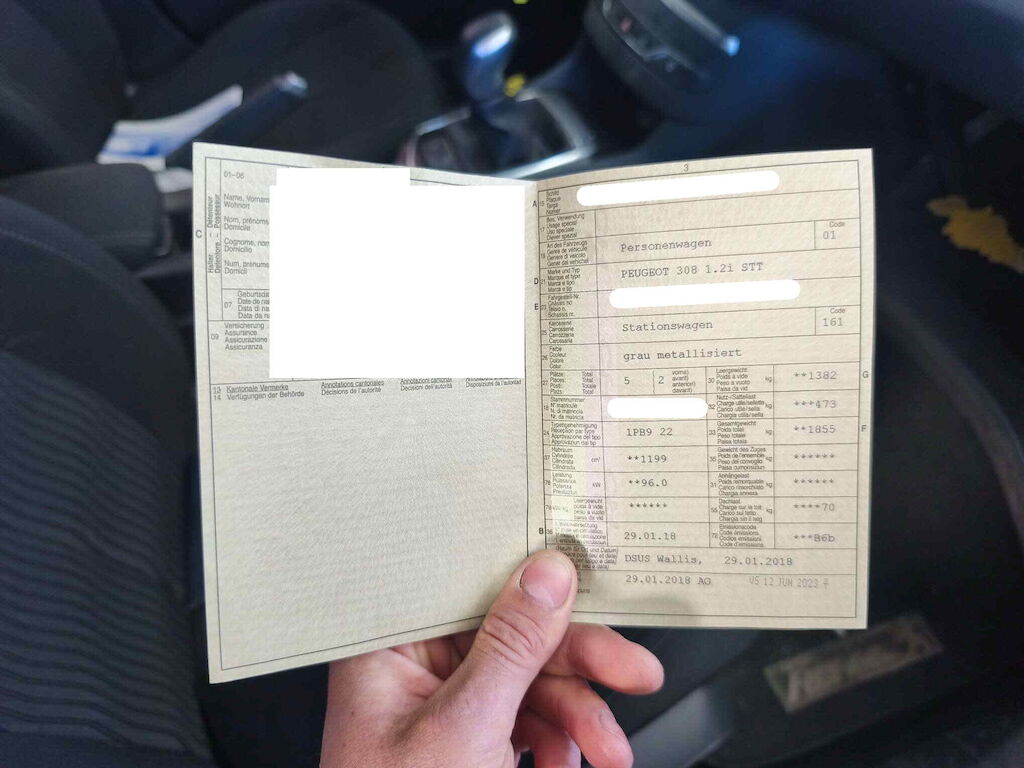 01-06
Name, Vornam
Wohnort
Nom, prénoms
Domicile
Cognome, nom
Domicilio
Num, prenums
Domicil
C
Halter Détenteur
Detentore Possessur
07
Geburtsda
Date de na
Data di na
Data da na
09
Versicherung
Assurance
Assicurazione
Assicuranza
13 Kantonale Vermerke
14 Verfügungen der Behörde
Annotations cantonales
Décisions de l'autorité
Annotazioni cantonali
Decisioni dell'autorità
Disposiziuns da l'autoritad
3
A 15
Schild
Plaque
Targa
Numer
17
Bes. Verwendung
Usage spécial
Uso speciale
Diever spezial
19
Art des Fahrzeugs
Genre de véhicule
Genere di veicolo
Gener dal vehichel
Personenwagen
Code
01
D 21
Marke und Typ
Marque et type
Marca e tipo
Marca e tip
PEUGEOT 308 1.2i STT
E 23
Fahrgestell-Nr.
Châssis no
Telaio n.
Schassis nr.
25
Karosserie
Carrosserie
Carrozzeria
Carossaria
Stationswagen
Code
161
26
Farbe
Couleur
Colore
Colur
grau metallisiert
27
Plätze: Total
Places: Total
Posti: Totale
Plazs: Total
5
2
vorn)
avant)
anteriori)
davant)
30
Leergewicht
Poids à vide
Peso a vuoto
Paisa da vid
kg
**1382
G
18
Stammnummer
N° matricule
N. di matricola
Nr. da matricla
32
Nutz-/Sattellast
Charge utile/sellette
Carico utile/sella
Chargia utila/sella
kg
***473
24
Typengenehmigung
Réception par type
Approvazione del tipo
Approvaziun dal tip
1PB9 22
33
Gesamtgewicht
Poids total
Peso totale
Paisa totala
kg
**1855
F
37
Hubraum
Cylindrée
Cilindrata
Cilindrada
cm³
**1199
35
Gewicht des Zuges
Poids de l'ensemble
Peso del convoglio
kg
******
76
Leistung
Puissance
Potenza
Prestaziun
kW
**96.0
31
Anhängelast
Poids remorquable
Carico rimorchiato
Chargia annexa
kg
******
Leergewicht
poids à vide
peso a vuoto
paisa da vid
******
55
Dachlast
Charge sur le toit
Carico sul tetto
Chargia sin il tetg
kg
****70
B 36
29.01.18
72
Emissionscode
Code émissions
Codice emissioni
Code d'emissiuns
***B6b
DSUS Wallis, 29.01.2018
29.01.2018 AG
VS 12 JUN 2023